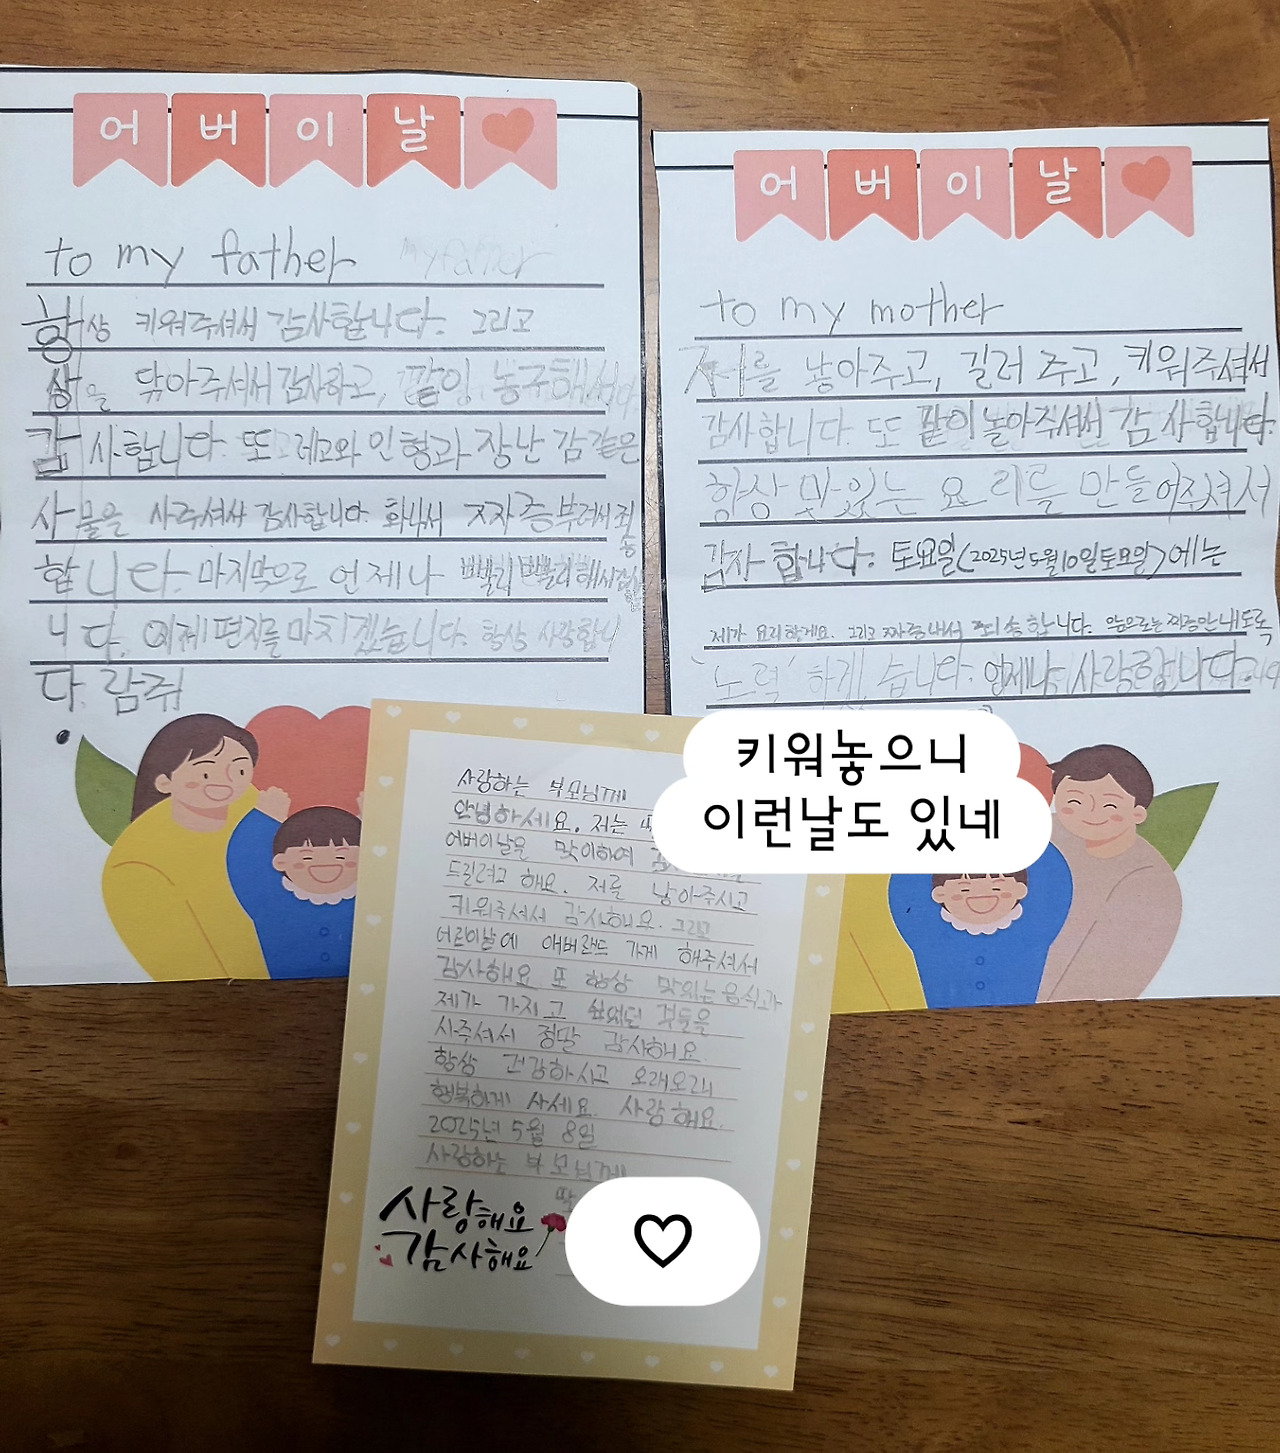 어버이날
to my father my father
항상 키워주셔서 감사합니다. 그리고
상을 닦아주셔서 감사하고, 같이 농구해서
감사합니다. 또 레고와 인형과 장난 감 같은
사물을 사주셔서 감사합니다. 화나서 짜증부려서 죄송
합니다. 마지막으로 언제나
니다. 이제 편지를 마치겠습니다. 항상 사랑합니
다. 람쥐
어버이날
to my mother
저를 낳아주고, 길러 주고, 키워주셔서
감사합니다. 또 같이 놀아주셔서 감사합니다.
항상 맛있는 요리를 만들어주셔서
감사 합니다. 토요일(2025년 5월 10일 토요일)에는
제가 요리할게요. 그리고 짜증내서 죄송합니다. 앞으로는 짜증안내도록
'노력' 하겠습니다. 언제나 사랑합니다.
키워놓으니
이런날도 있네
사랑하는 부모님께
안녕하세요. 저는
어버이날을 맞이하여
드릴려고 해요. 저를 낳아주시고
키워주셔서 감사해요. 그리고
어린이날에 애버랜드 가게 해주셔서
감사해요. 또 항상 맛있는 음식과
제가 가지고 싶었던 것들을
사주셔서 정말 감사해요
항상 건강하시고 오래오래
행복하게 사세요. 사랑해요.
2025년 5월 8일
사랑하는 부모님께
사랑해요
감사해요